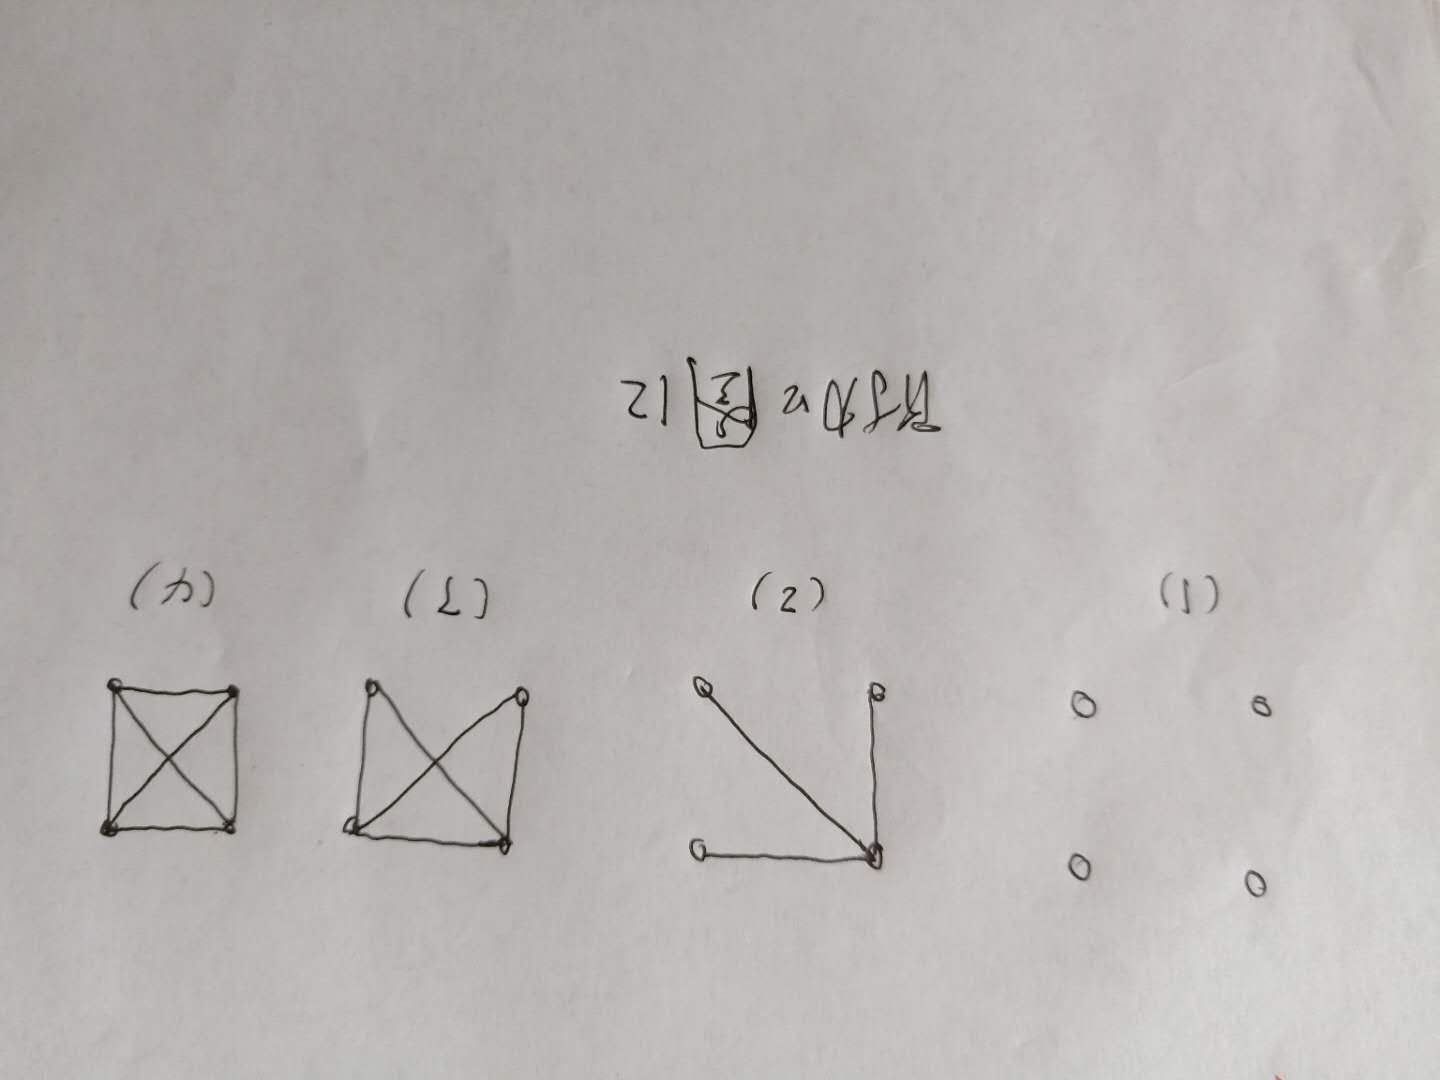 (1) (2) (3) (4)
附加图12